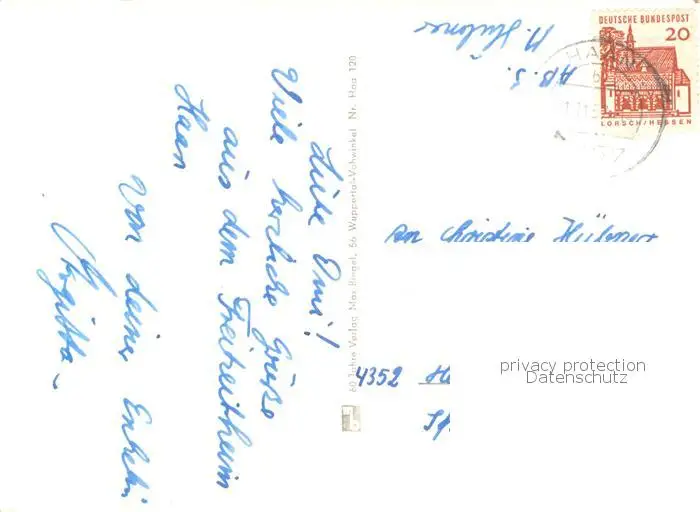 Liebe Omi!
Viele herzliche Grüße
aus dem Freizeitheim
Haan
Von deiner Enkelin
Brigitta
60 Jahre Verlag Max Biegel, 56 Wuppertal-Vohwinkel Nr. Haa 120
M. Hübner
AB. S.
DEUTSCHE BUNDESPOST
20
LORSCH/HESSEN
HAAN
An Christine Hübner
4352 He
privacy protection
Datenschutz